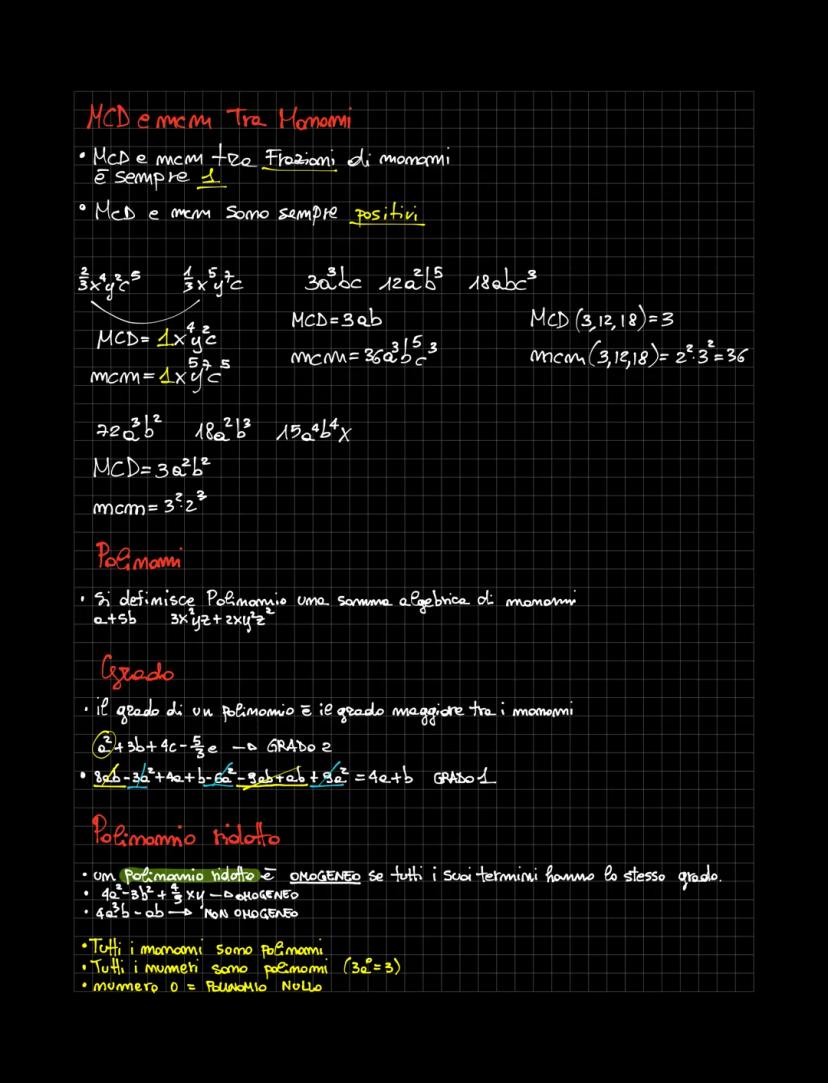 MCD e mcm Tra Monomi
• MCD e mcm tra Frazioni di monomi
è sempre 1
• MCD e mcm sono sempre positivi
2/3x⁴y²c⁵ 1/3x⁵y⁷c 3a³bc 12a²b⁵ 18abc³
MCD=3ab MCD(3,12,18)=3
MCD=1x⁴y²c
mcm=36a³b⁵c³ mcm(3,12,18)=2²·3²=36
mcm=1x⁵y⁷c⁵
72a³b² 18a²b³ 15a⁴b⁴x
MCD=3a²b²
mcm=3²·2³
Polinomi
• Si definisce Polinomio una somma algebrica di monomi
a+5b 3x²yz+2xy²z²
Grado
• il grado di un polinomio è il grado maggiore tra i monomi
a²+3b+4c-5/3e → GRADO 2
• 8ab-3a²+4a+b-6a²-9ab+ab+9a²=4a+b GRADO 1
Polinomio ridotto
• un polinomio ridotto è OMOGENEO se tutti i suoi termini hanno lo stesso grado.
• 4a²-3b²+4/5xy → OMOGENEO
• 4a³b-ab → NON OMOGENEO
• Tutti i monomi sono polinomi
• Tutti i numeri sono polinomi (3a⁰=3)
• nummero 0 = POLINOMIO NULLO